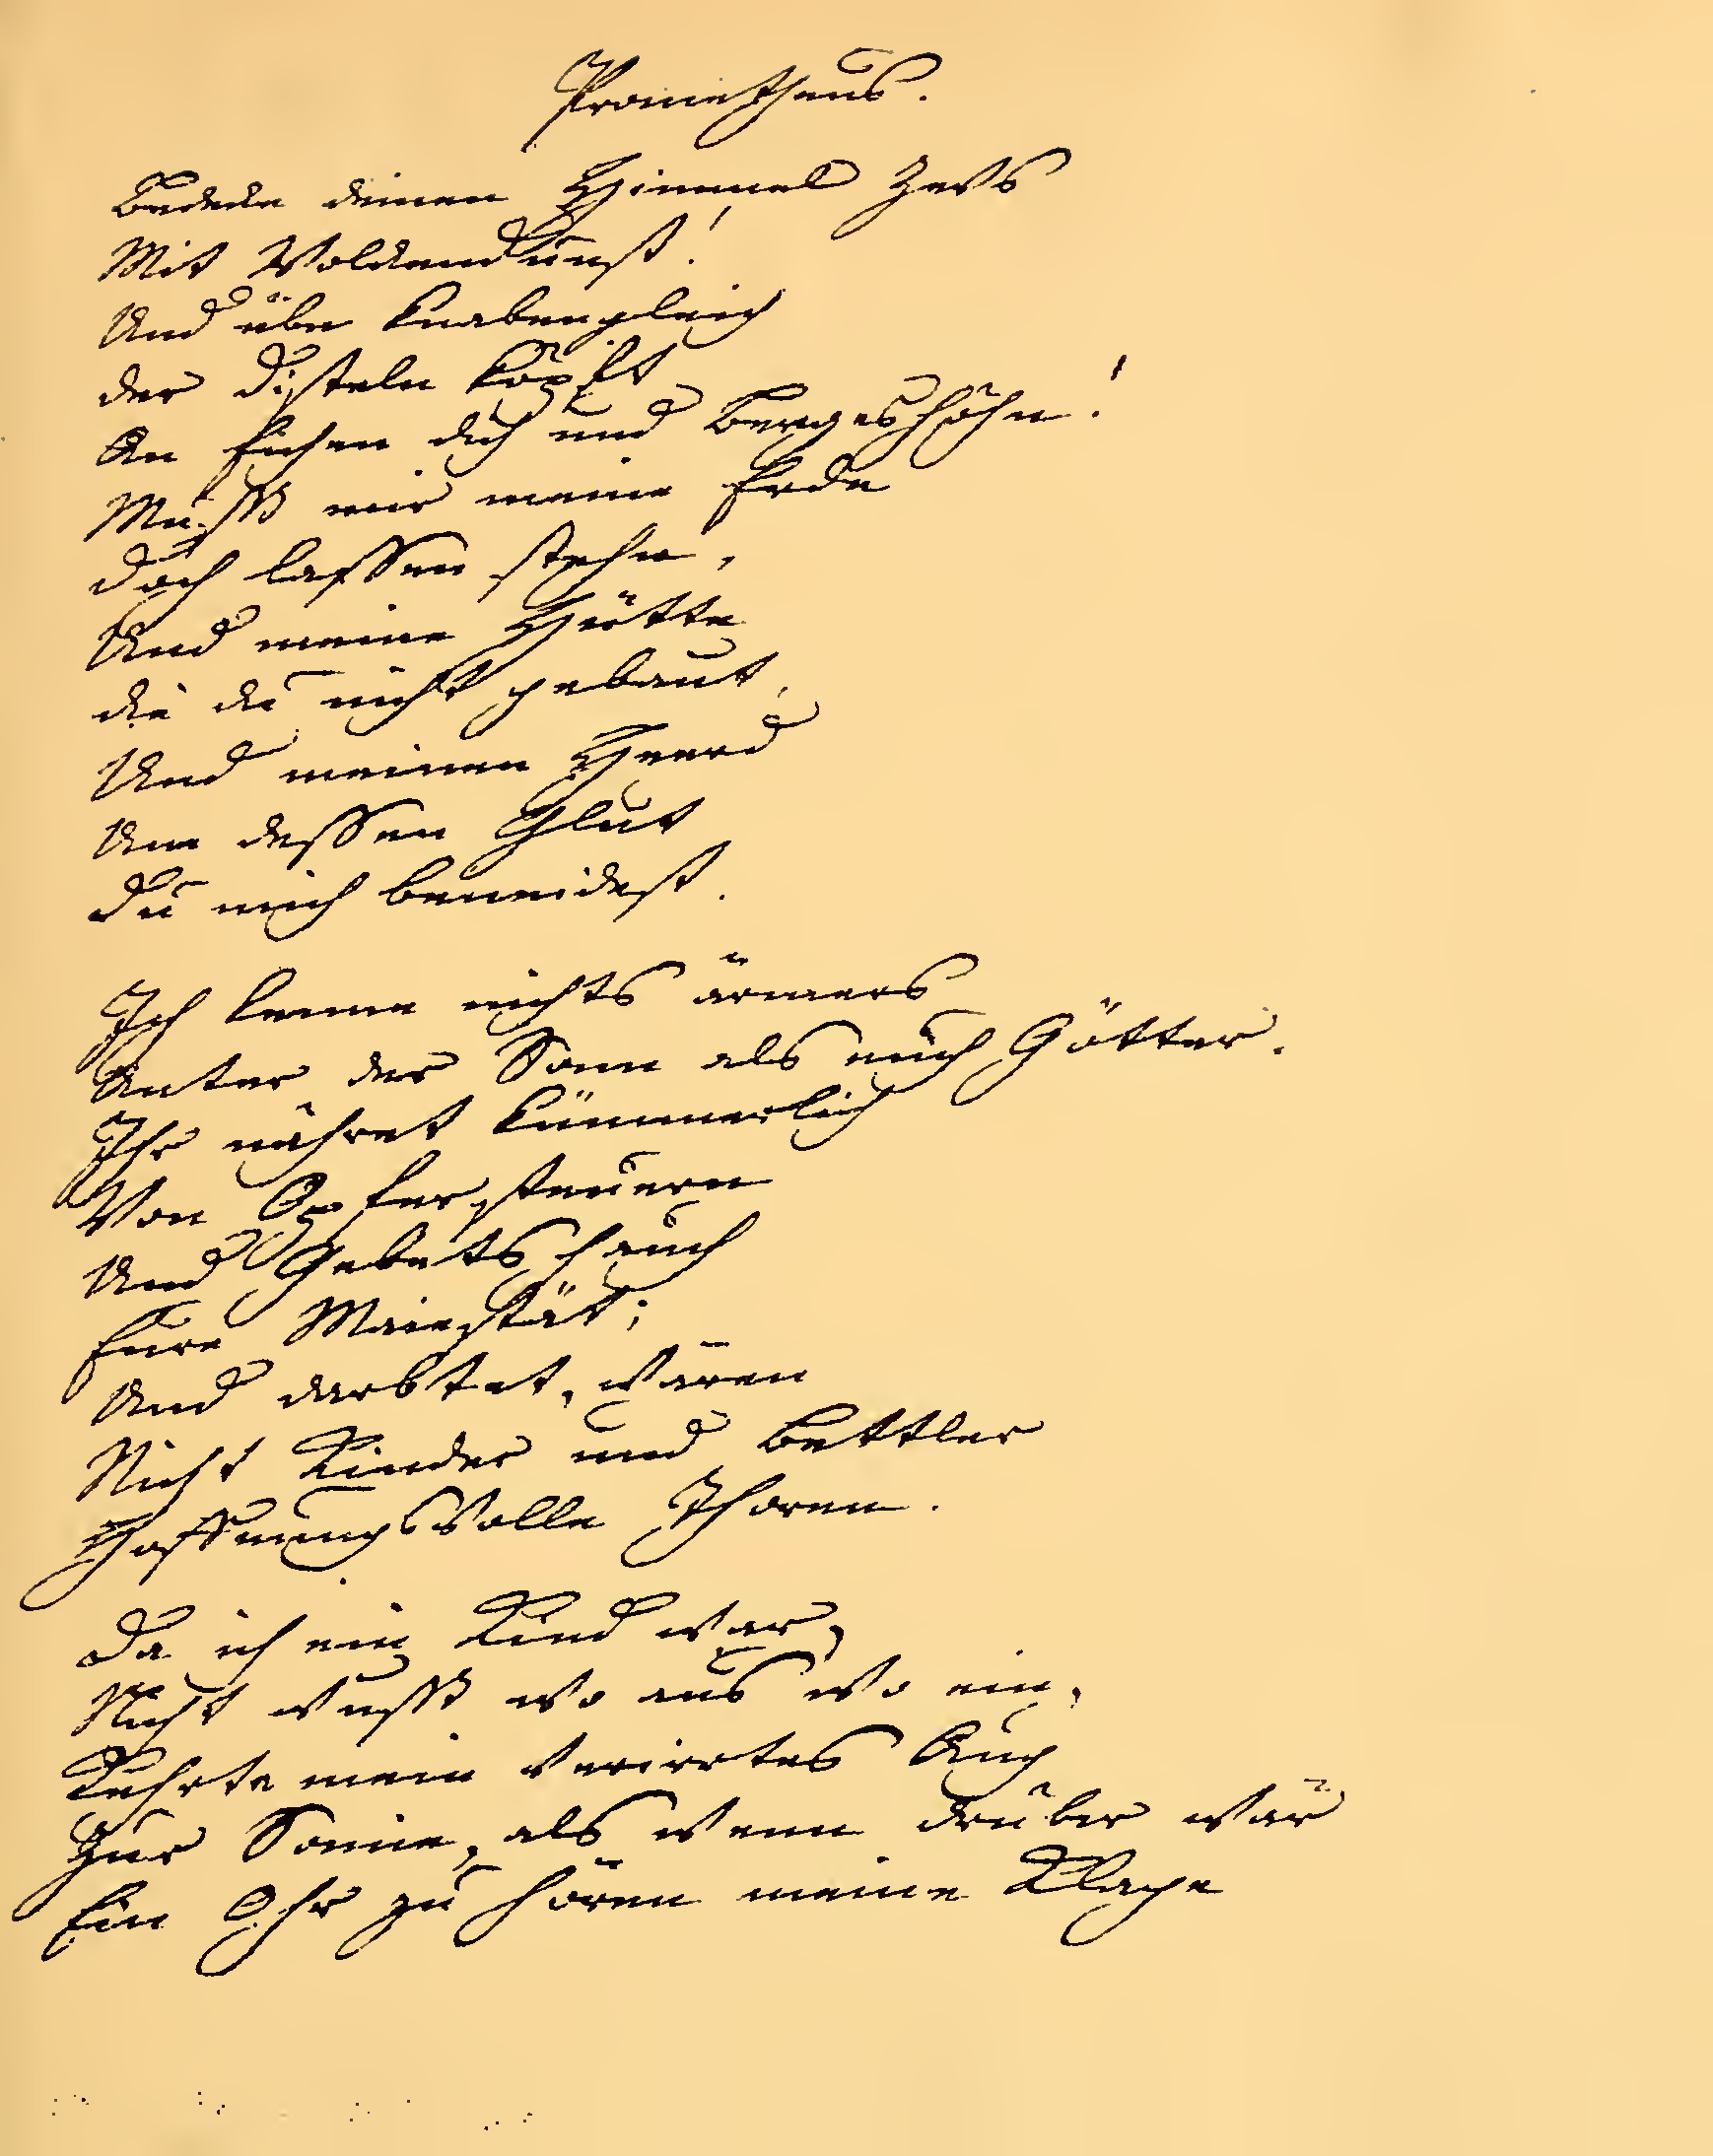 Prometheus.
Bedecke deinen Himmel Zevs
Mit Wolckendunst!
Und übe Knabengleich
der Disteln köpft
An Eichen dich und Bergeshöhn!
Musst mir meine Erde
doch lassen stehn,
Und meine Hütte
die du nicht gebaut,
Und meinen Heerd
Um dessen Glut
du mich beneidest.
Ich kenne nichts ärmers
Unter der Sonn als euch Götter.
Ihr nähret kümmerlich
Von Opfersteuern
Und Gebetshauch
Eure Maiestät;
Und darbtet, wären
Nicht Kinder und Bettler
Hoffnungsvolle Thoren.
Da ich ein Kind war,
Nicht wusst wo aus wo ein,
Kehrte mein verirrtes Aug
Zur Sonne, als wenn drüber wär
Ein Ohr zu hören meine Klage